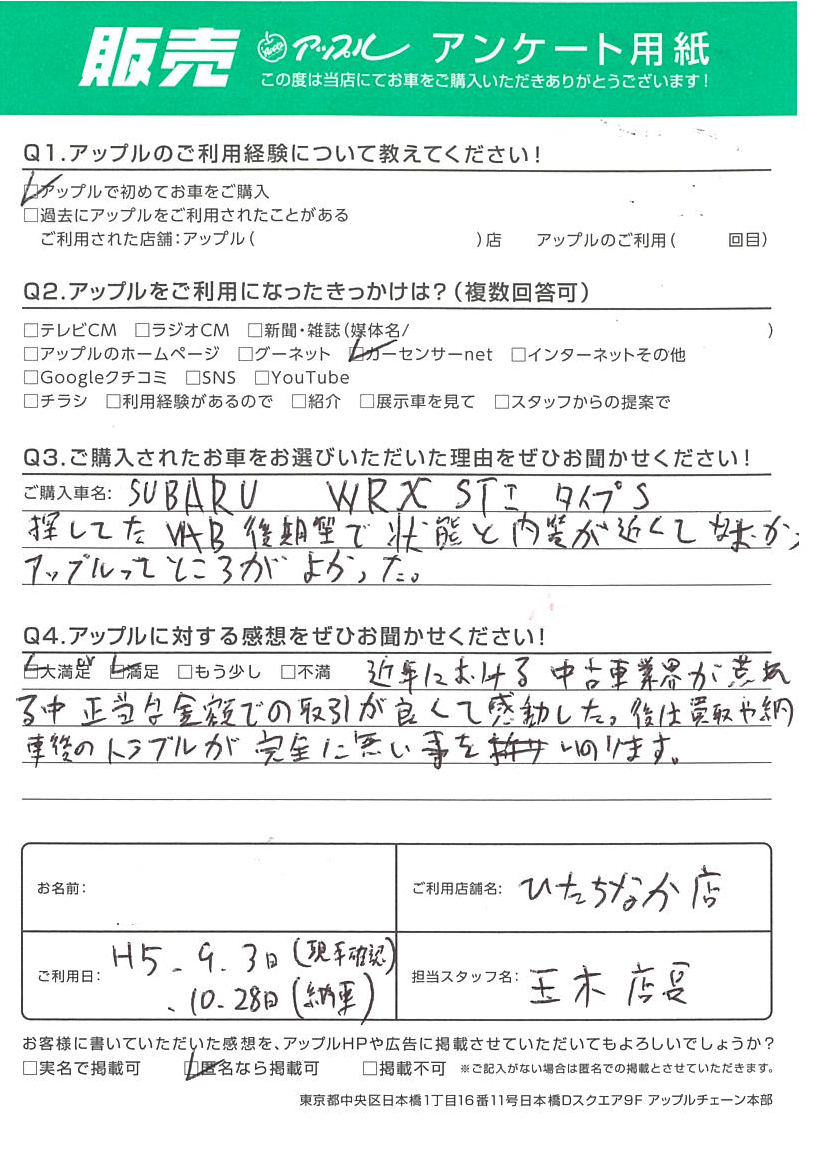 販売 アップル アンケート用紙
この度は当店にてお車をご購入いただきありがとうございます!
Q1.アップルのご利用経験について教えてください!
□アップルで初めてお車をご購入
□過去にアップルをご利用されたことがある
ご利用された店舗:アップル( )店 アップルのご利用( 回目)
Q2.アップルをご利用になったきっかけは?(複数回答可)
□テレビCM □ラジオCM □新聞・雑誌(媒体名/ )
□アップルのホームページ □グーネット □カーセンサーnet □インターネットその他
□Googleクチコミ □SNS □YouTube
□チラシ □利用経験があるので □紹介 □展示車を見て □スタッフからの提案で
Q3.ご購入されたお車をお選びいただいた理由をぜひお聞かせください!
ご購入車名: SUBARU WRX STI タイプS
探してた VAB 後期型で 状態と内容が近くて
アップルってところがよかった。
Q4.アップルに対する感想をぜひお聞かせください!
□大満足 or □満足 □もう少し □不満 近年における 中古車業界が荒れ
る中 正当な金額での取引が良くて感動した。後は買取や納
車後のトラブルが完全に無い事を いのります。
お名前:
ご利用店舗名: ひたちなか店
ご利用日: H5.9.3日(現車確認)
.10.28日(納車)
担当スタッフ名: 玉木 店長
お客様に書いていただいた感想を、アップルHPや広告に掲載させていただいてもよろしいでしょうか?
□実名で掲載可 □匿名なら掲載可 □掲載不可 ※ご記入がない場合は匿名での掲載とさせていただきます。
東京都中央区日本橋1丁目16番11号日本橋Dスクエア9F アップルチェーン本部